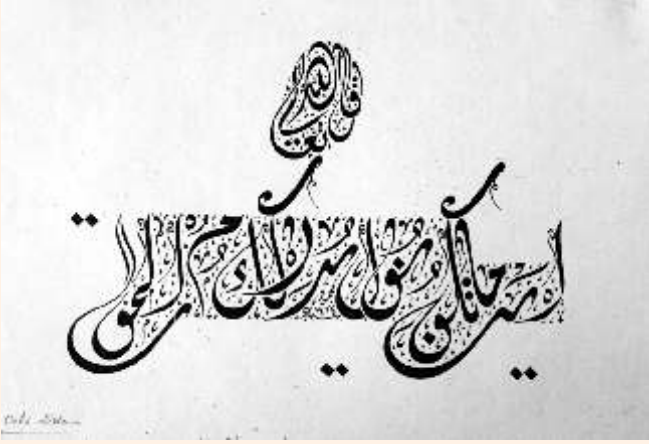 قال الله تعالى
أينما تكونوا يدرككم الموت